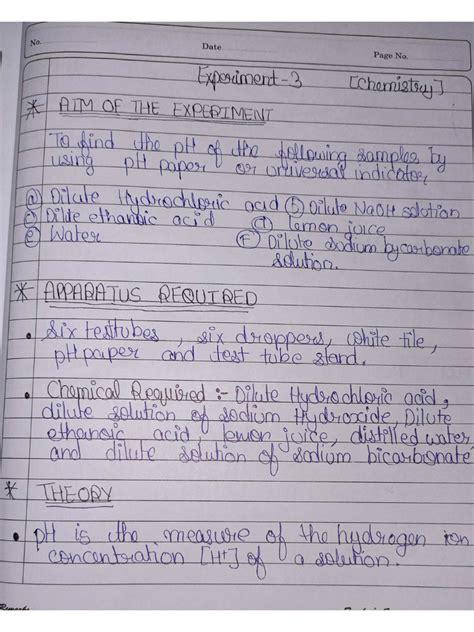 No.
Date
Page No.
Experiment-3 [Chemistry]
* AIM OF THE EXPERIMENT
To find the pH of the following samples by
using pH paper or universal indicator
(a) Dilute Hydrochloric acid (b) Dilute NaOH solution
(c) Dilute ethanoic acid (d) Lemon juice
(e) Water (F) Dilute sodium bycarbonate
solution.
* APPARATUS REQUIRED
• Six testtubes, six droppers, white tile,
pH paper and test tube stand.
• Chemical Required :- Dilute Hydrochloric acid,
dilute solution of sodium Hydroxide, Dilute
ethanoic acid, lemon juice, distilled water,
and dilute solution of sodium bicarbonate
* THEORY
• pH is the measure of the hydrogen ion
concentration [H+] of a solution.
Remarks